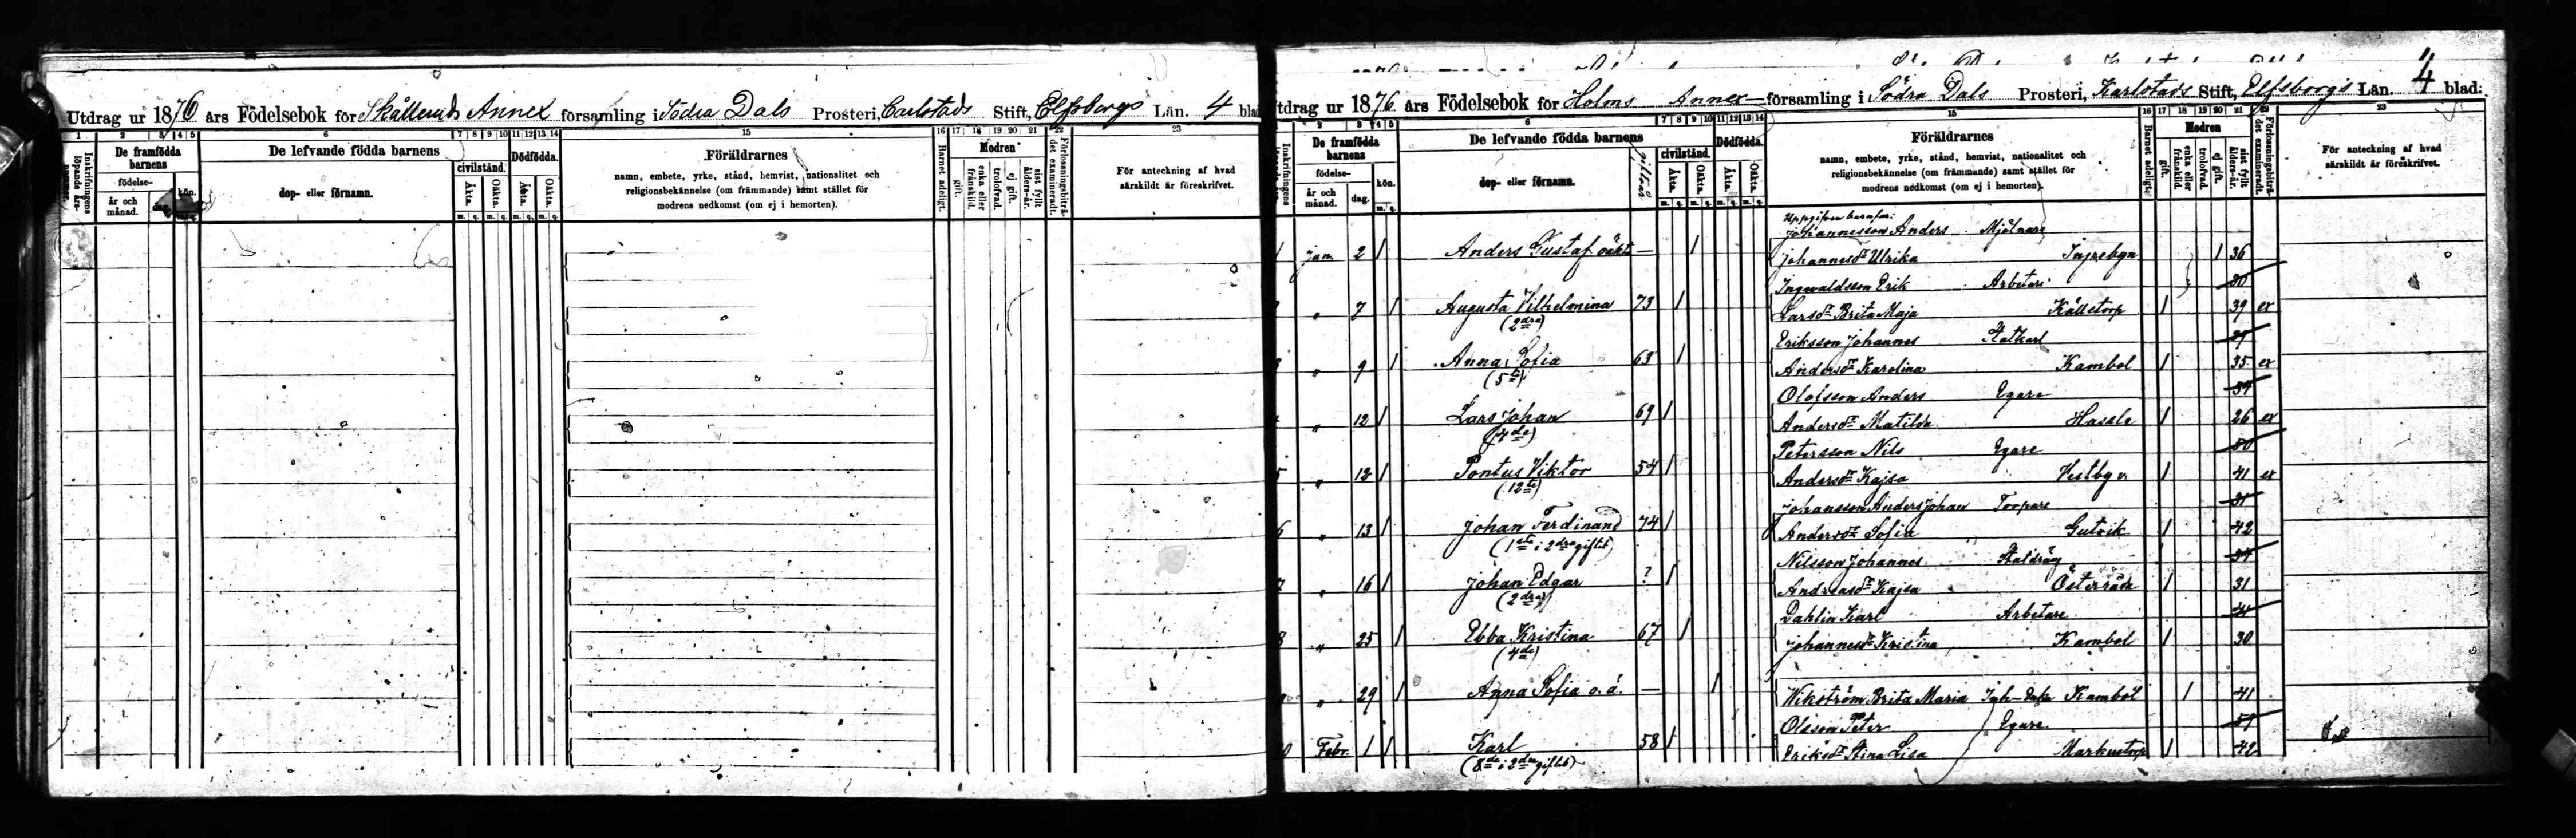 Utdrag ur 1876 års Födelsebok för Skålleruds Annex församling i Södra Dals Prosteri, Carlstads Stift, Elfsborgs Län. 4 blad
1 2 3 4 5 6 7 8 9 10 11 12 13 14 15 16 17 18 19 20 21 22 23
Inskrifningens löpande års-nummer.
De framfödda barnens
födelse-
år och månad.
dag.
kön.
De lefvande födda barnens
dop- eller förnamn.
civilstånd.
Äkta.
Oäkta.
m. q. m. q.
Dödfödda.
Äkta.
Oäkta.
m. q. m. q.
Föräldrarnes
namn, embete, yrke, stånd, hemvist, nationalitet och
religionsbekännelse (om främmande) samt stället för
modrens nedkomst (om ej i hemorten).
Barnet adeligt.
Modren
gift.
enka eller frånskild.
trolofvad.
ej gift.
sist fyllt ålders-år.
Förlossningsbiträdet examineradt.
För anteckning af hvad
särskildt är föreskrifvet.
tdrag ur 1876 års Födelsebok för Holms Annex församling i Södra Dals Prosteri, Karlstads Stift, Elfsborgs Län. 4 blad:
1 2 3 4 5 6 7 8 9 10 11 12 13 14 15 16 17 18 19 20 21 22 23
Inskrifningens
De framfödda barnens
födelse-
år och månad.
dag.
kön.
m. q.
De lefvande födda barnens
dop- eller förnamn.
gift år
civilstånd.
Äkta.
Oäkta.
m. q. m. q.
Dödfödda.
Äkta.
Oäkta.
m. q. m. q.
Föräldrarnes
namn, embete, yrke, stånd, hemvist, nationalitet och
religionsbekännelse (om främmande) samt stället för
modrens nedkomst (om ej i hemorten).
Barnet adeligt.
Modren
gift.
enka eller frånskild.
trolofvad.
ej gift.
sist fyllt ålders-år.
Förlossningsbiträdet examineradt.
För anteckning af hvad
särskildt är föreskrifvet.
Uppgifven barnfar:
Johannesson Anders Mjölnare
1 Jan. 2 1 Anders Gustaf oäkta — 1 Johannesdr Ulrika Ingrebyn 1 36
Ingvaldsson Erik Arbetare 30
2 " 7 1 Augusta Vilhelmina 73 1 Larsdr Brita Maja Källetorp 1 39 ex
(2dra)
Eriksson Johannes Statkarl 29
3 " 9 1 Anna Sofia 63 1 Andersdr Karolina Kambol 1 35 ex
(5te)
Olofsson Anders Egare
" 12 1 Lars Johan 69 1 Andersdr Matilda Hassle 1 26 ex
(4de)
Petersson Nils Egare 50
5 " 12 1 Pontus Viktor 54 1 Andersdr Kajsa Vestbyn 1 41 ex
(12te)
Johansson Anders Johan Torpare 31
6 " 13 1 Johan Ferdinand 74 1 Andersdr Sofia Gutvik 1 42
(1sta i 2dra giftet)
Nilsson Johannes Staldräng
7 " 16 1 Johan Edgar ? 1 Andreasdr Kajsa Österråda 1 31
(2dra)
Dahlin Karl Arbetare
8 " 25 1 Ebba Kristina 67 1 Johannesdr Kristina Kambol 1 30
(4de)
" 29 1 Anna Sofia o.ä. — 1 Wikström Brita Maria Kambol 1 41
Olsson Peter Egare
0 Febr. 1 1 Karl 58 1 Eriksdr Stina Lisa Markustorp 1 42
(8de i 2dra giftet)